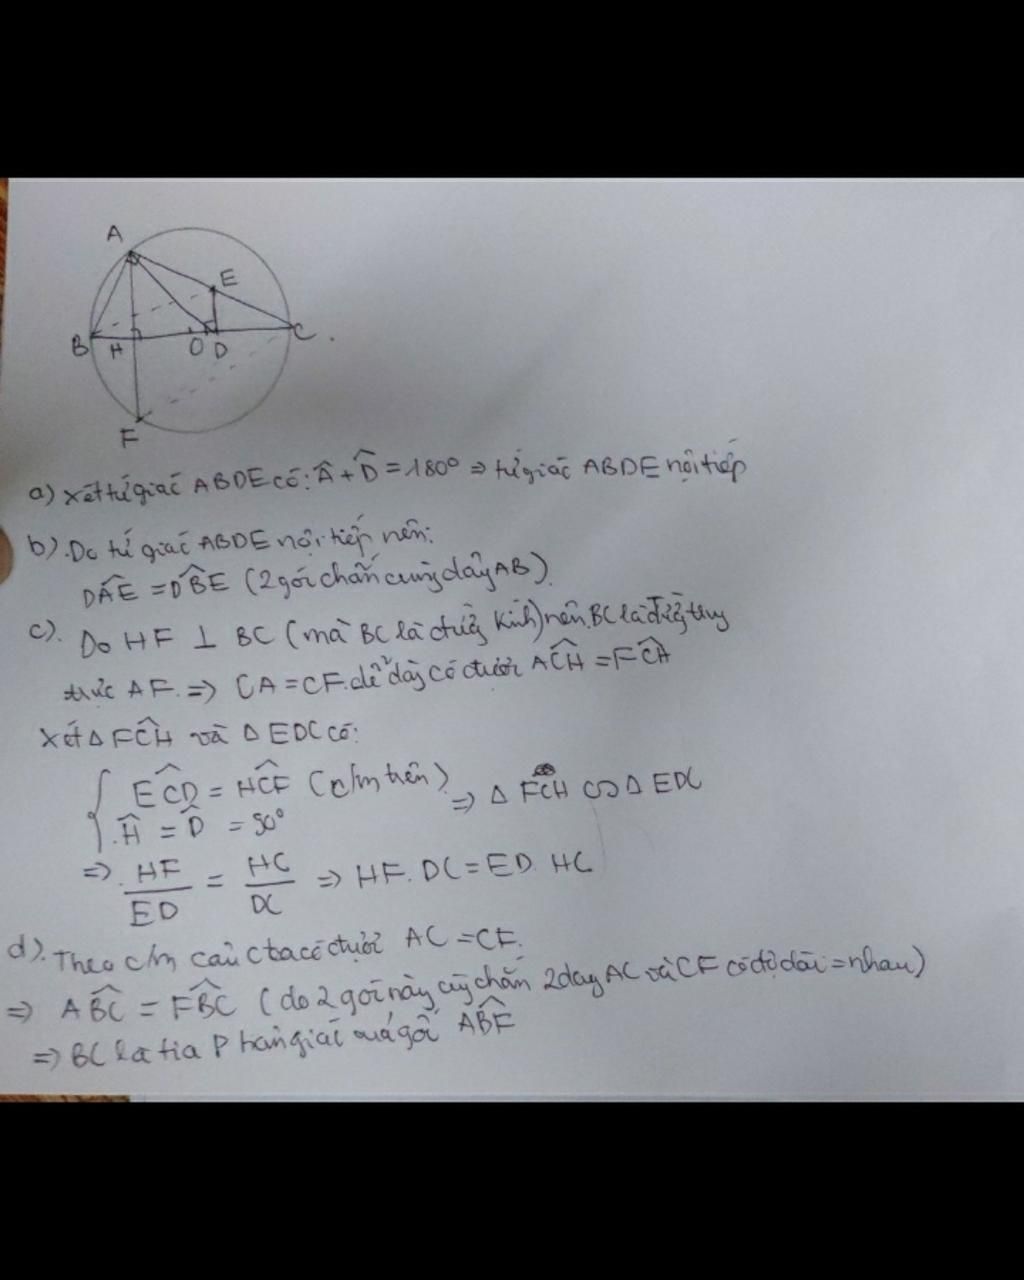 A
E
B
H
O
D
C
F
a) Xét tứ giác ABDE có: Â + D̂ = 180° ⇒ tứ giác ABDE nội tiếp
b). Do tứ giác ABDE nội tiếp nên:
DÂE = DB̂E (2 góc chắn cùng dây AB)
c). Do HF ⊥ BC (mà BC là đường kính) nên BC là đường trung
trực AF. ⇒ CA = CF. dễ dàng có được AĈH = FĈH
Xét Δ FĈH và Δ EDC có:
EĈD = HĈF (c/m trên)
Ĥ = D̂ = 90°
⇒ Δ FCH ∽ Δ EDC
⇒ HF/ED = HC/DC ⇒ HF. DC = ED. HC
d). Theo c/m câu c ta có được AC = CF.
⇒ AB̂C = FB̂C (do 2 góc này cùng chắn 2 dây AC và CF có độ dài = nhau)
⇒ BC là tia phân giác của góc AB̂F